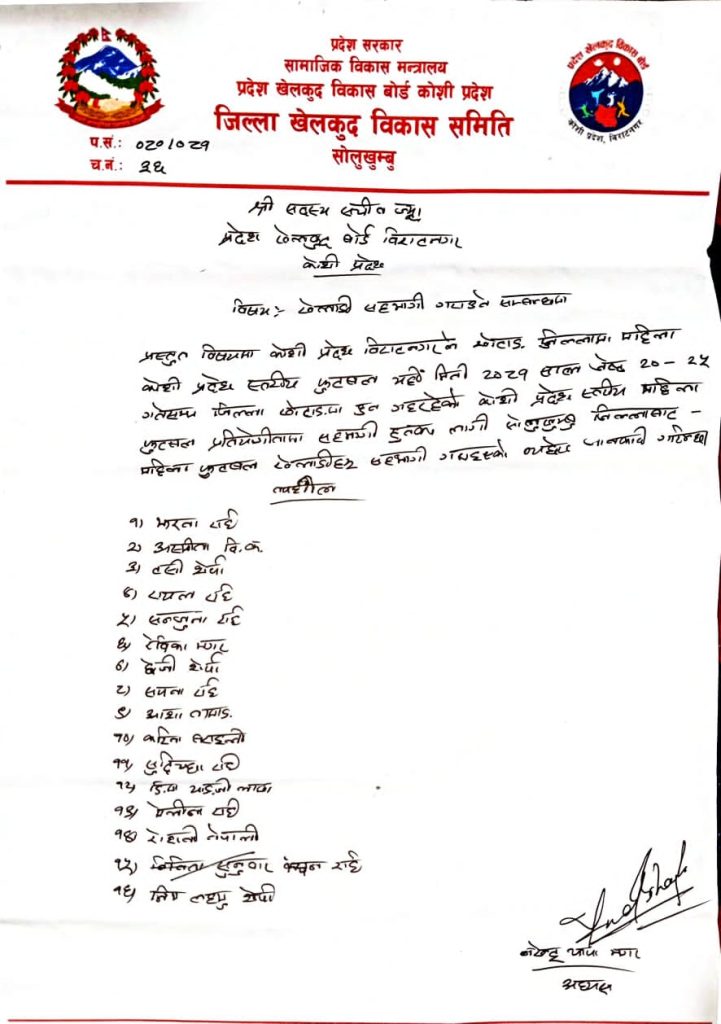 प्रदेश सरकार
सामाजिक विकास मन्त्रालय
प्रदेश खेलकुद विकास बोर्ड कोशी प्रदेश
जिल्ला खेलकुद विकास समिति
सोलुखुम्बु
प्रदेश खेलकुद विकास बोर्ड
कोशी प्रदेश, विराटनगर
प.सं.: ०८०/०८१
च.नं.: ३६
श्री सदस्य सचीव ज्यू।
प्रदेश खेलकुद बोर्ड विराटनगर
कोशी प्रदेश
विषय:- खेलाडी सहभागी गराउने सम्बन्धमा
प्रस्तुत विषयमा कोशी प्रदेश विराटनगरले खोटाङ जिल्लामा महिला
कोशी प्रदेश स्तरीय फुटसल यही मिती २०८१ साल जेष्ठ २०-२५
गतेसम्म जिल्ला खोटाङमा हुन गइरहेको कोशी प्रदेश स्तरीय महिला
फुटसल प्रतियोगीतामा सहभागी हुनका लागी सोलुखुम्बु जिल्लाबाट -
महिला फुटसल खेलाडीहरु सहभागी गराइएको जानकारी गरिन्छ।
तपशील
१) राई
२) अस्मीता वि.क.
३) शेर्पा
४) राई
५) सन्जुता राई
६) देविका मगर
७) शेर्पा
८) सपना राई
९) आशा तामाङ
१०) करिता
११) राई
१२) लामा
१३) राई
१४) नेपाली
१५) सुनुवार राई
१६) शेर्पा
थापा मगर
अध्यक्ष